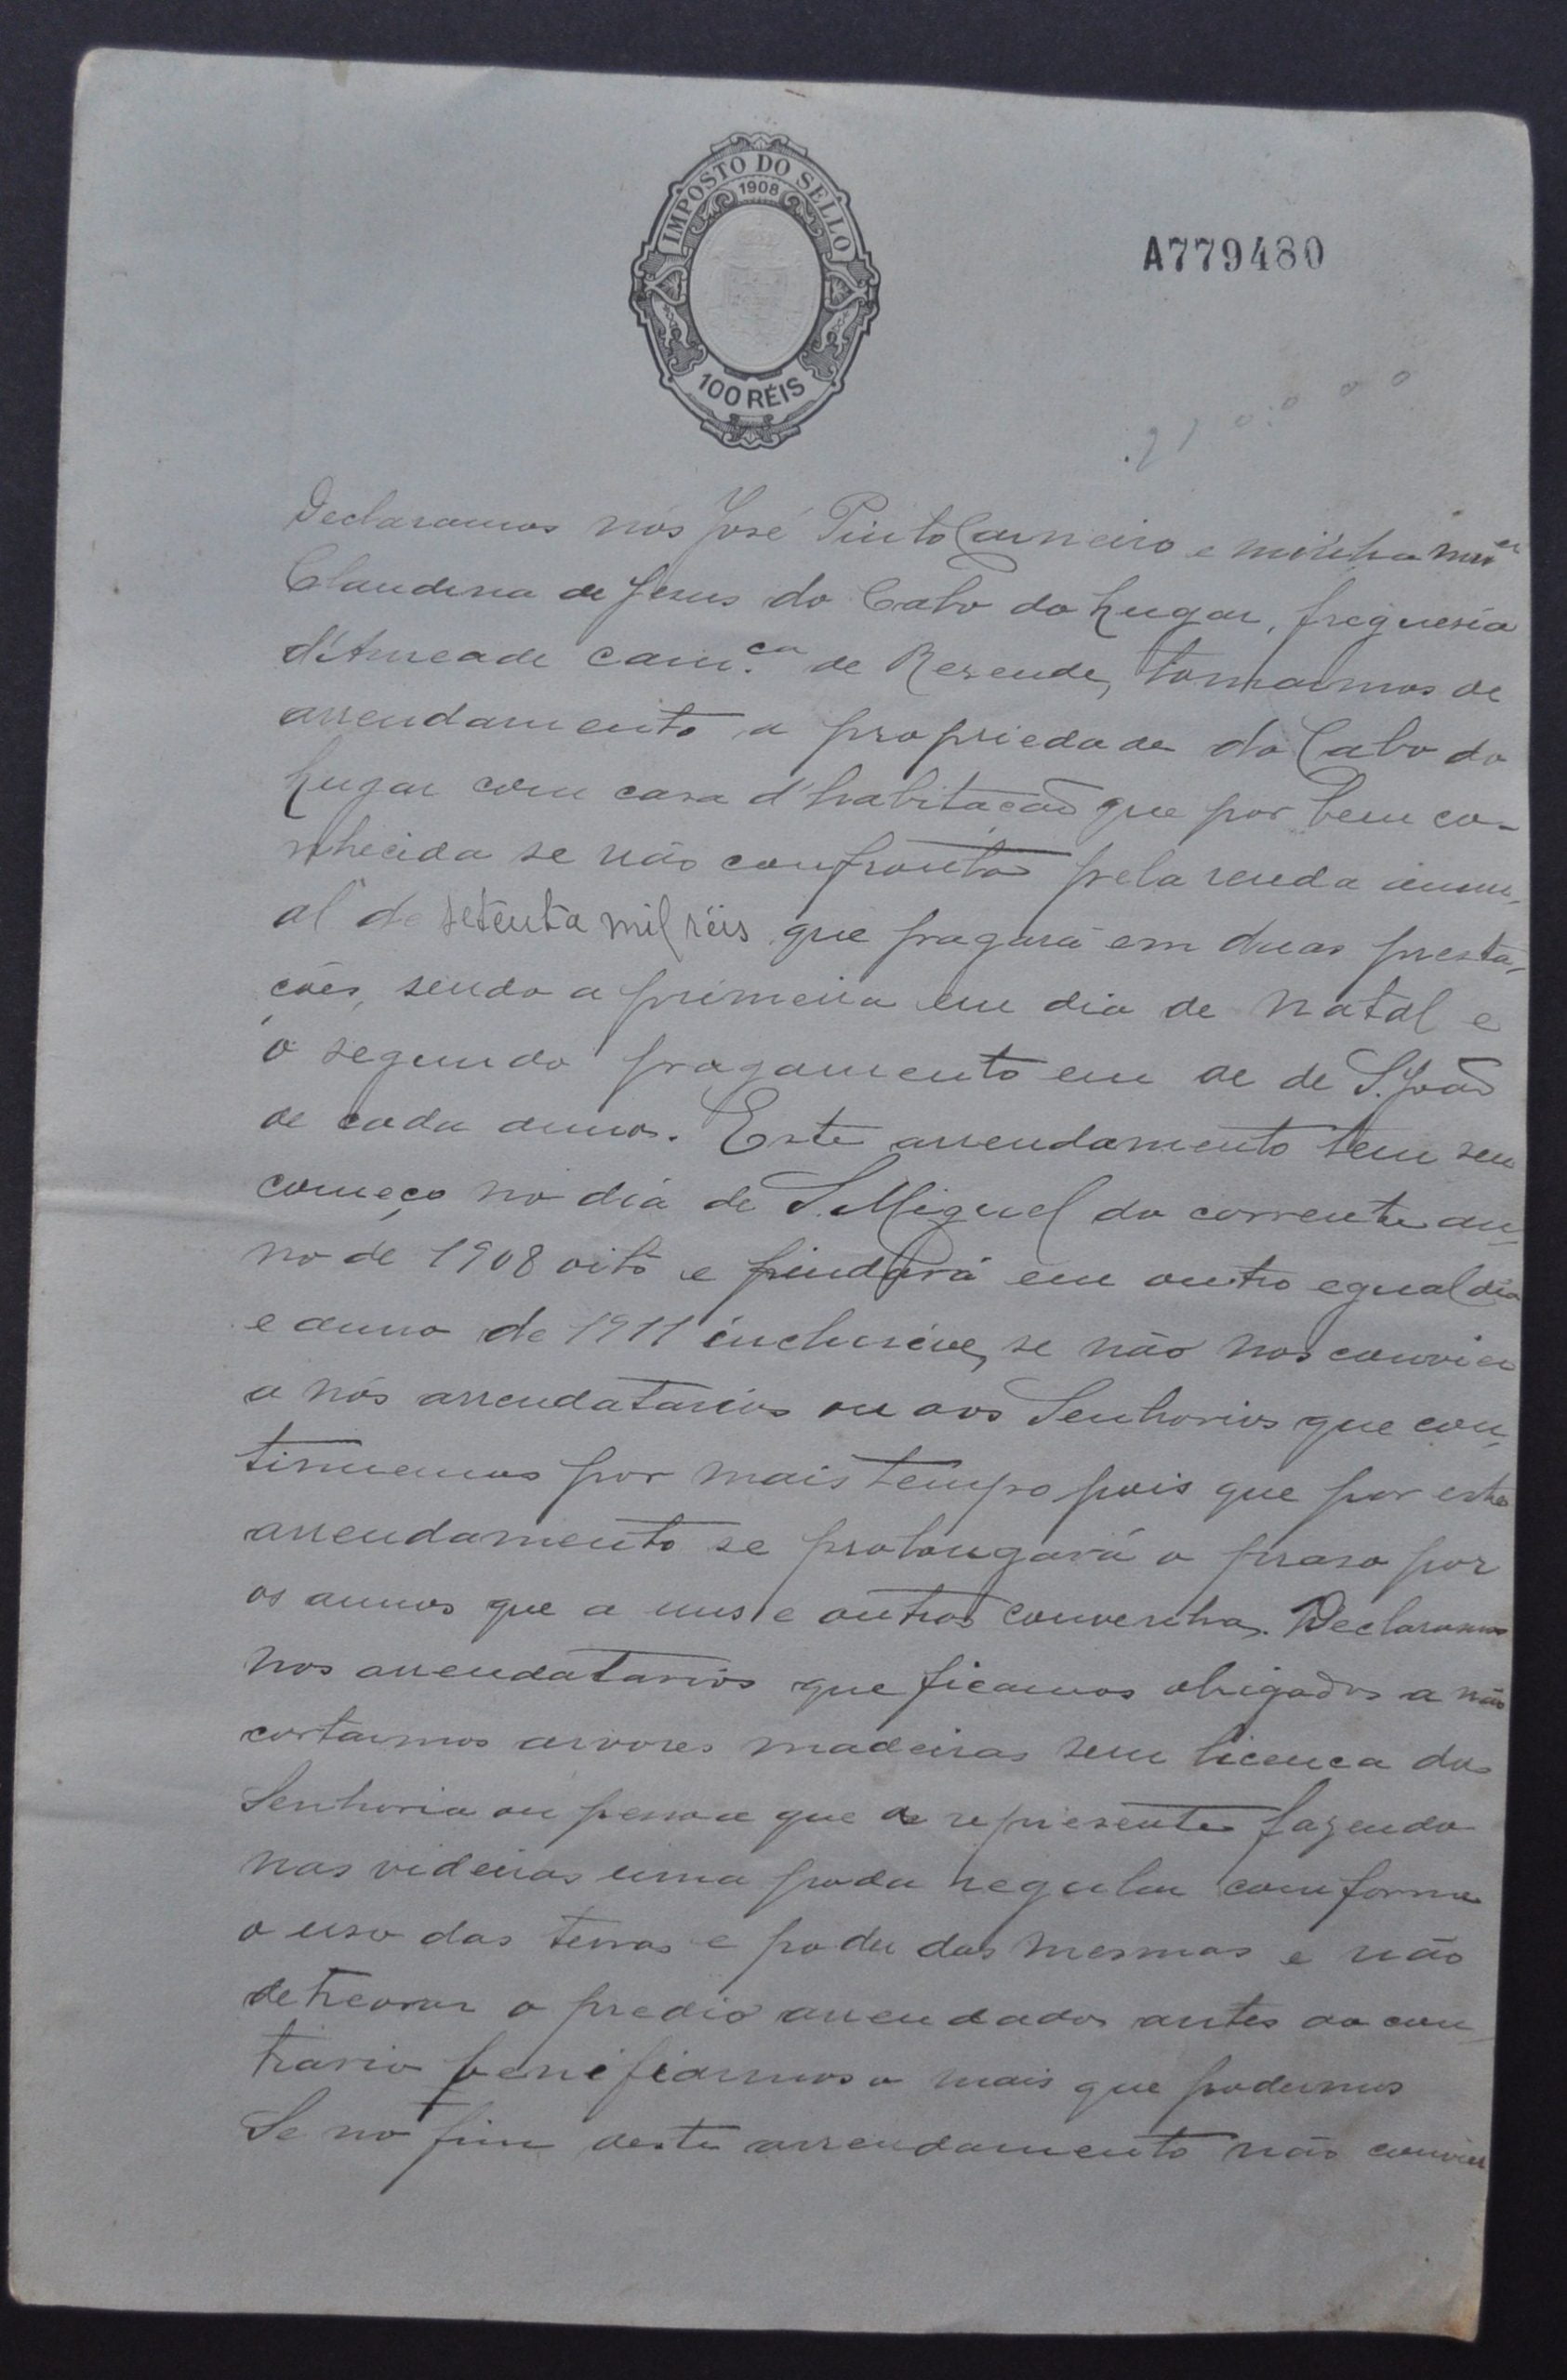 IMPOSTO DO SELLO
1908
100 RÉIS
A779480
Declaramos nós José Pinto Carneiro e minha mer
Claudina de Jesus do Cabo do Lugar, freguesia
d'Anreade com.ca de Resende, tomamos de
arrendamento a propriedade do Cabo do
Lugar com casa d'habitação que por bem co-
nhecida se não confronta pela renda annu-
al de setenta mil réis que pagará em duas presta-
ções, sendo a primeira em dia de Natal e
o segundo pagamento em de de S. João
de cada anno. Este arrendamento tem seu
começo no dia de S. Miguel do corrente an-
no de 1908 oito e findará em outro egual dia
e anno de 1911 incluseve, se não nos convier
a nós arrendatarios ou aos Senhorios que con-
tinuemos por mais tempo pois que por este
arrendamento se prolongará o praso por
os annos que a uns e outros convenha. Declaramos
nos arrendatarios que ficamos obrigados a não
cortarmos arvores madeiras sem licença da
Senhoria ou pessoa que a represente fazendo
nas videiras uma poda regular conforme
o uso das terras e poda das mesmas e não
detreorar o predio arrendado antes ao con-
trario benifiarmos o mais que podermos
Se no fim deste arrendamento não convier